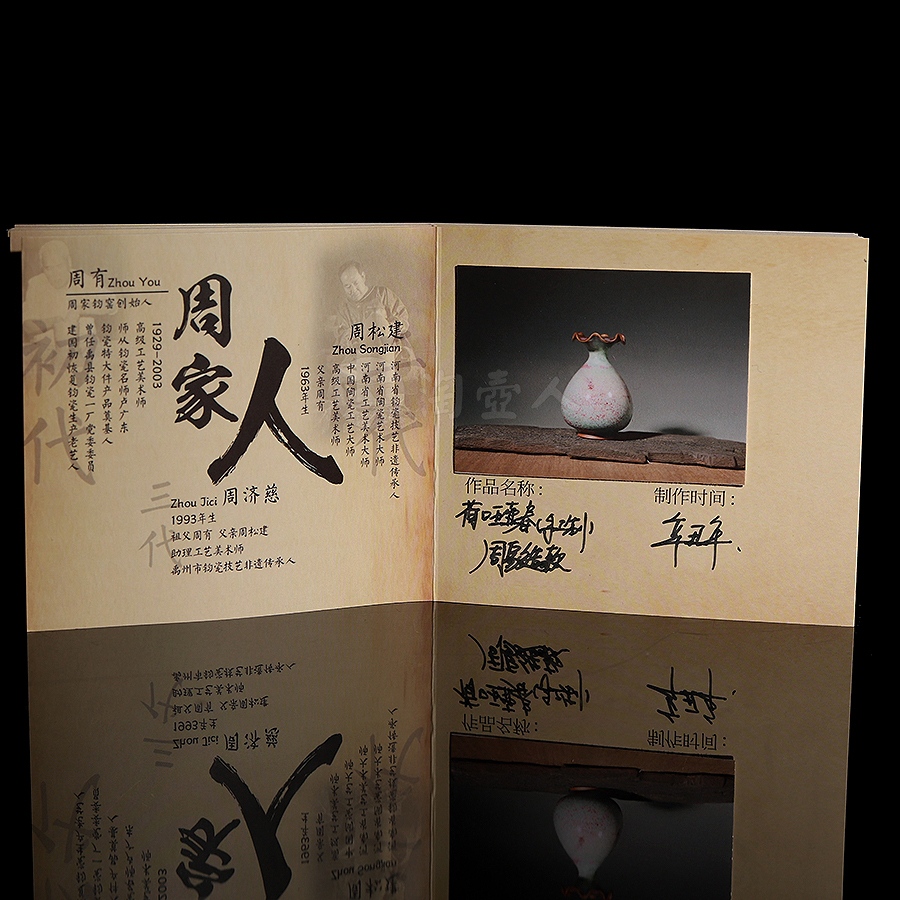 周有 Zhou You
周家钧窑创始人
1929-2003
高级工艺美术师
师从钧瓷名师卢广东
钧瓷特大件产品奠基人
曾任禹县钧瓷一厂党委委员
建国初恢复钧瓷生产老艺人
初代
周家人
周松建
Zhou Songjian
1963年生
父亲周有
高级工艺美术师
中国陶瓷工艺大师
河南省工艺美术大师
河南省陶瓷艺术大师
河南省钧瓷技艺非遗传承人
三代
Zhou Jici 周济慈
1993年生
祖父周有 父亲周松建
助理工艺美术师
禹州市钧瓷技艺非遗传承人
壶人
作品名称：
制作时间：
辛丑年.